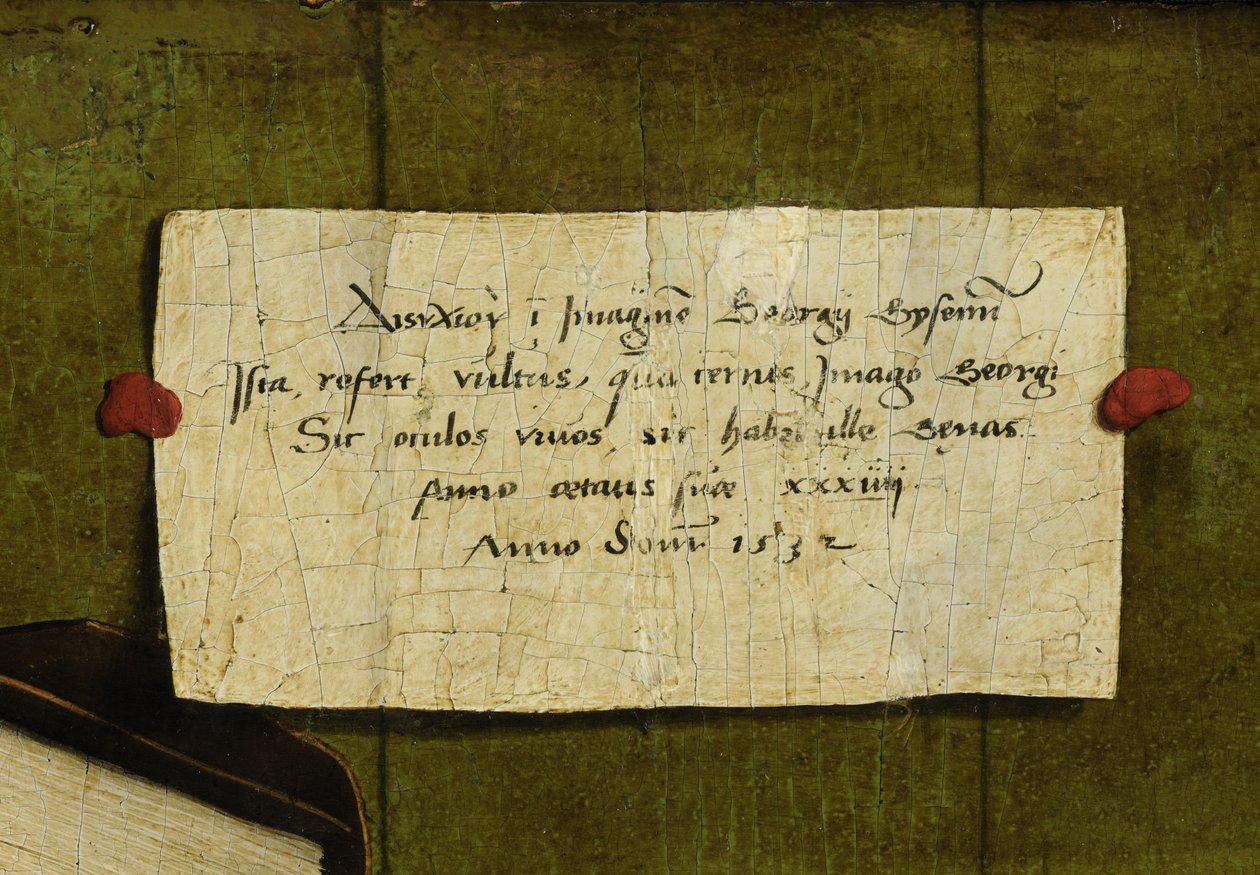 Δισυχιον ī Imagine͂ Georgij Gysenn̄
Ista refert vultus, qua͂ cernis, Imago Georgi
Sic oculos viuos, sic habet ille genas.
Anno ætatis suæ xxxiiij.
Anno Dom̄ 1532